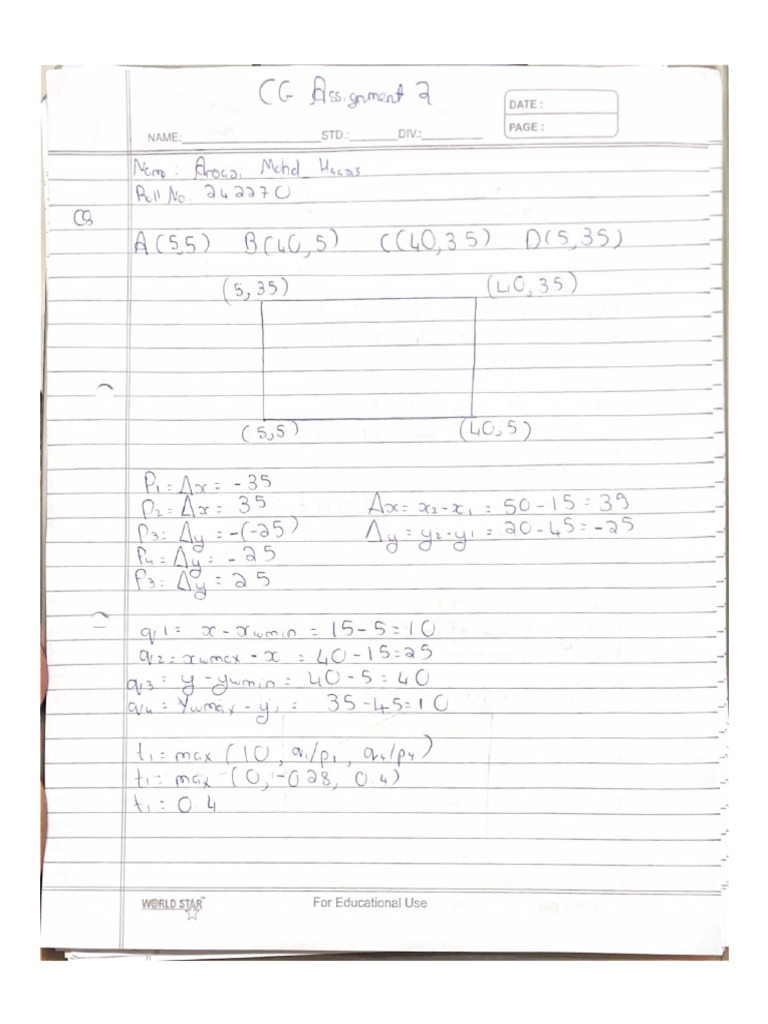 CG Assignment 2
DATE :
PAGE :
NAME: STD.: DIV.:
Mohd
Roll No. 242270
A(5,5) B(40,5) C(40,35) D(5,35)
(5,35) (40,35)
(5,5) (40,5)
P₁ = Δx = -35
P₂ = Δx = 35 Δx = x₂-x₁ = 50-15 = 35
P₃ = Δy = -(-25) Δy = y₂-y₁ = 20-45 = -25
P₄ = Δy = -25
P₃ = Δy = 25
q1 = x - xwmin = 15-5 = 10
q2 = xwmax - x = 40-15=25
q3 = y - ywmin = 40-5 = 40
q4 = Ywmax - y₁ = 35-45=10
t₁ = max (10, q₁/p₁, q₄/p₄)
t₁ = max (0, -028, 0.4)
t₁ = 0.4
WORLD STAR For Educational Use